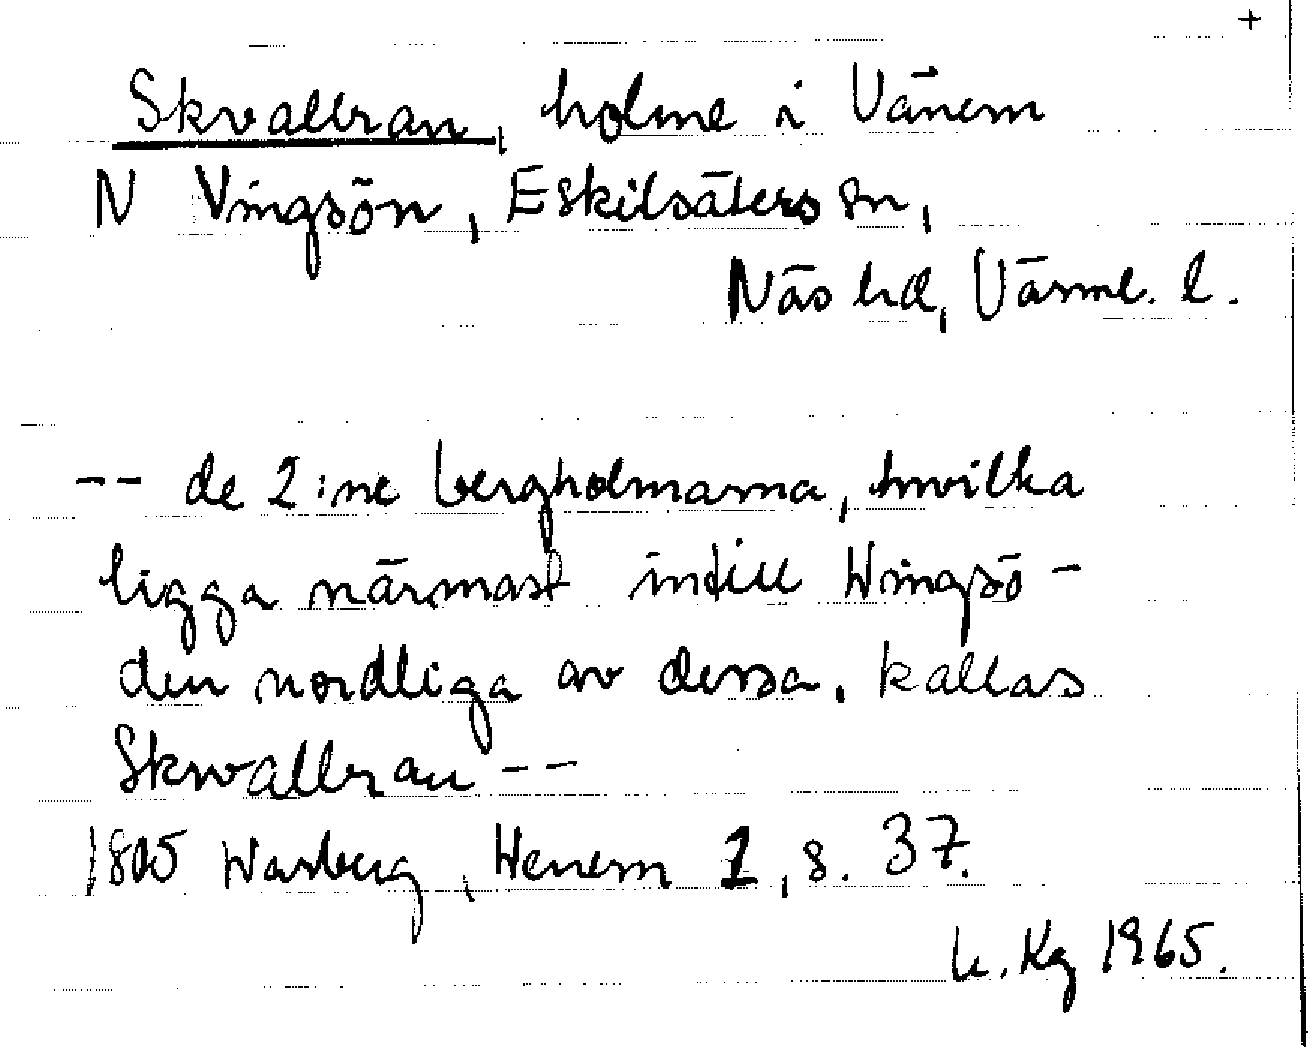 +
Skvallran, holme i Vänern
N Vingsön, Eskilsäters sn,
Näs hd, Värml. l.
-- de 2:ne bergholmarna, hwilka
ligga närmast intill Wingsö -
den nordliga av dessa, kallas
Skwallran --
1805 Warberg, Wenern 1, s. 37.
Kg 1965.